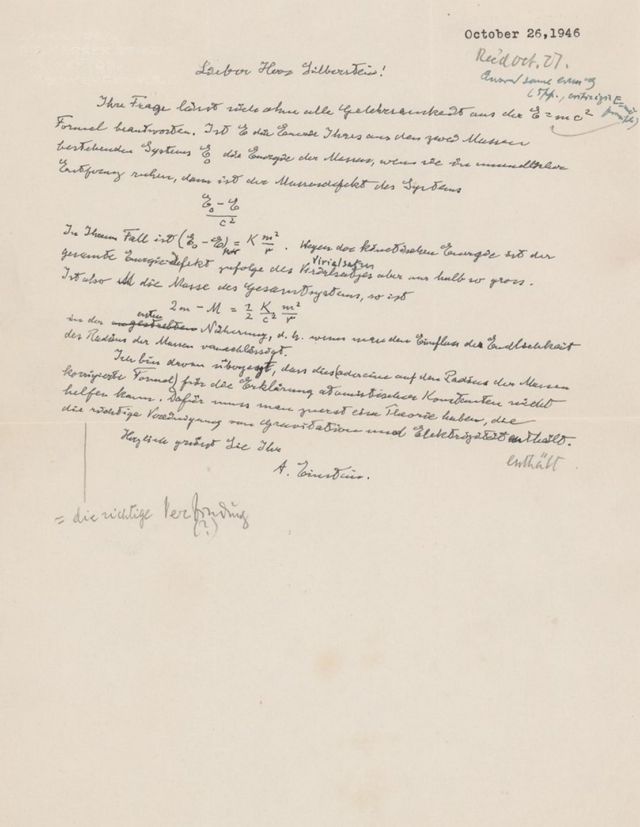 October 26, 1946
Rec'd Oct. 27.
Answ'd same
Lieber Herr Silberstein!
Ihre Frage lässt sich ohne alle Gelehrsamkeit aus der E = mc²
Formel beantworten. Ist E die Energie Ihres aus den zwei Massen
bestehenden Systems, E₀ die Energie der Massen, wenn sie in unendlicher
Entfernung ruhen, dann ist der Massendefekt des Systems
E₀ − E / c²
In Ihrem Fall ist (E₀ − E) = K m²/r. Wegen der kinetischen Energie ist der
Virialsatzes
gesamte Energiedefekt zufolge des Virialsatzes aber nur halb so gross.
Ist also M die Masse des Gesamtsystems, so ist
2m − M = ½ K/c² m²/r
ersten
in der Näherung, d. h. wenn man den Einfluss der Endlichkeit
des Radius der Massen vernachlässigt.
Ich bin davon überzeugt, dass dies (oder eine auf den Radius der Massen
korrigierte Formel) für die Erklärung atomistischer Konstanten nicht
helfen kann. Dafür muss man zuerst eine Theorie haben, die
die richtige Vereinigung von Gravitation und Elektrizität enthält.
enthält
Herzlich grüsst Sie Ihr
A. Einstein.
= die richtige Verbindung
(?)